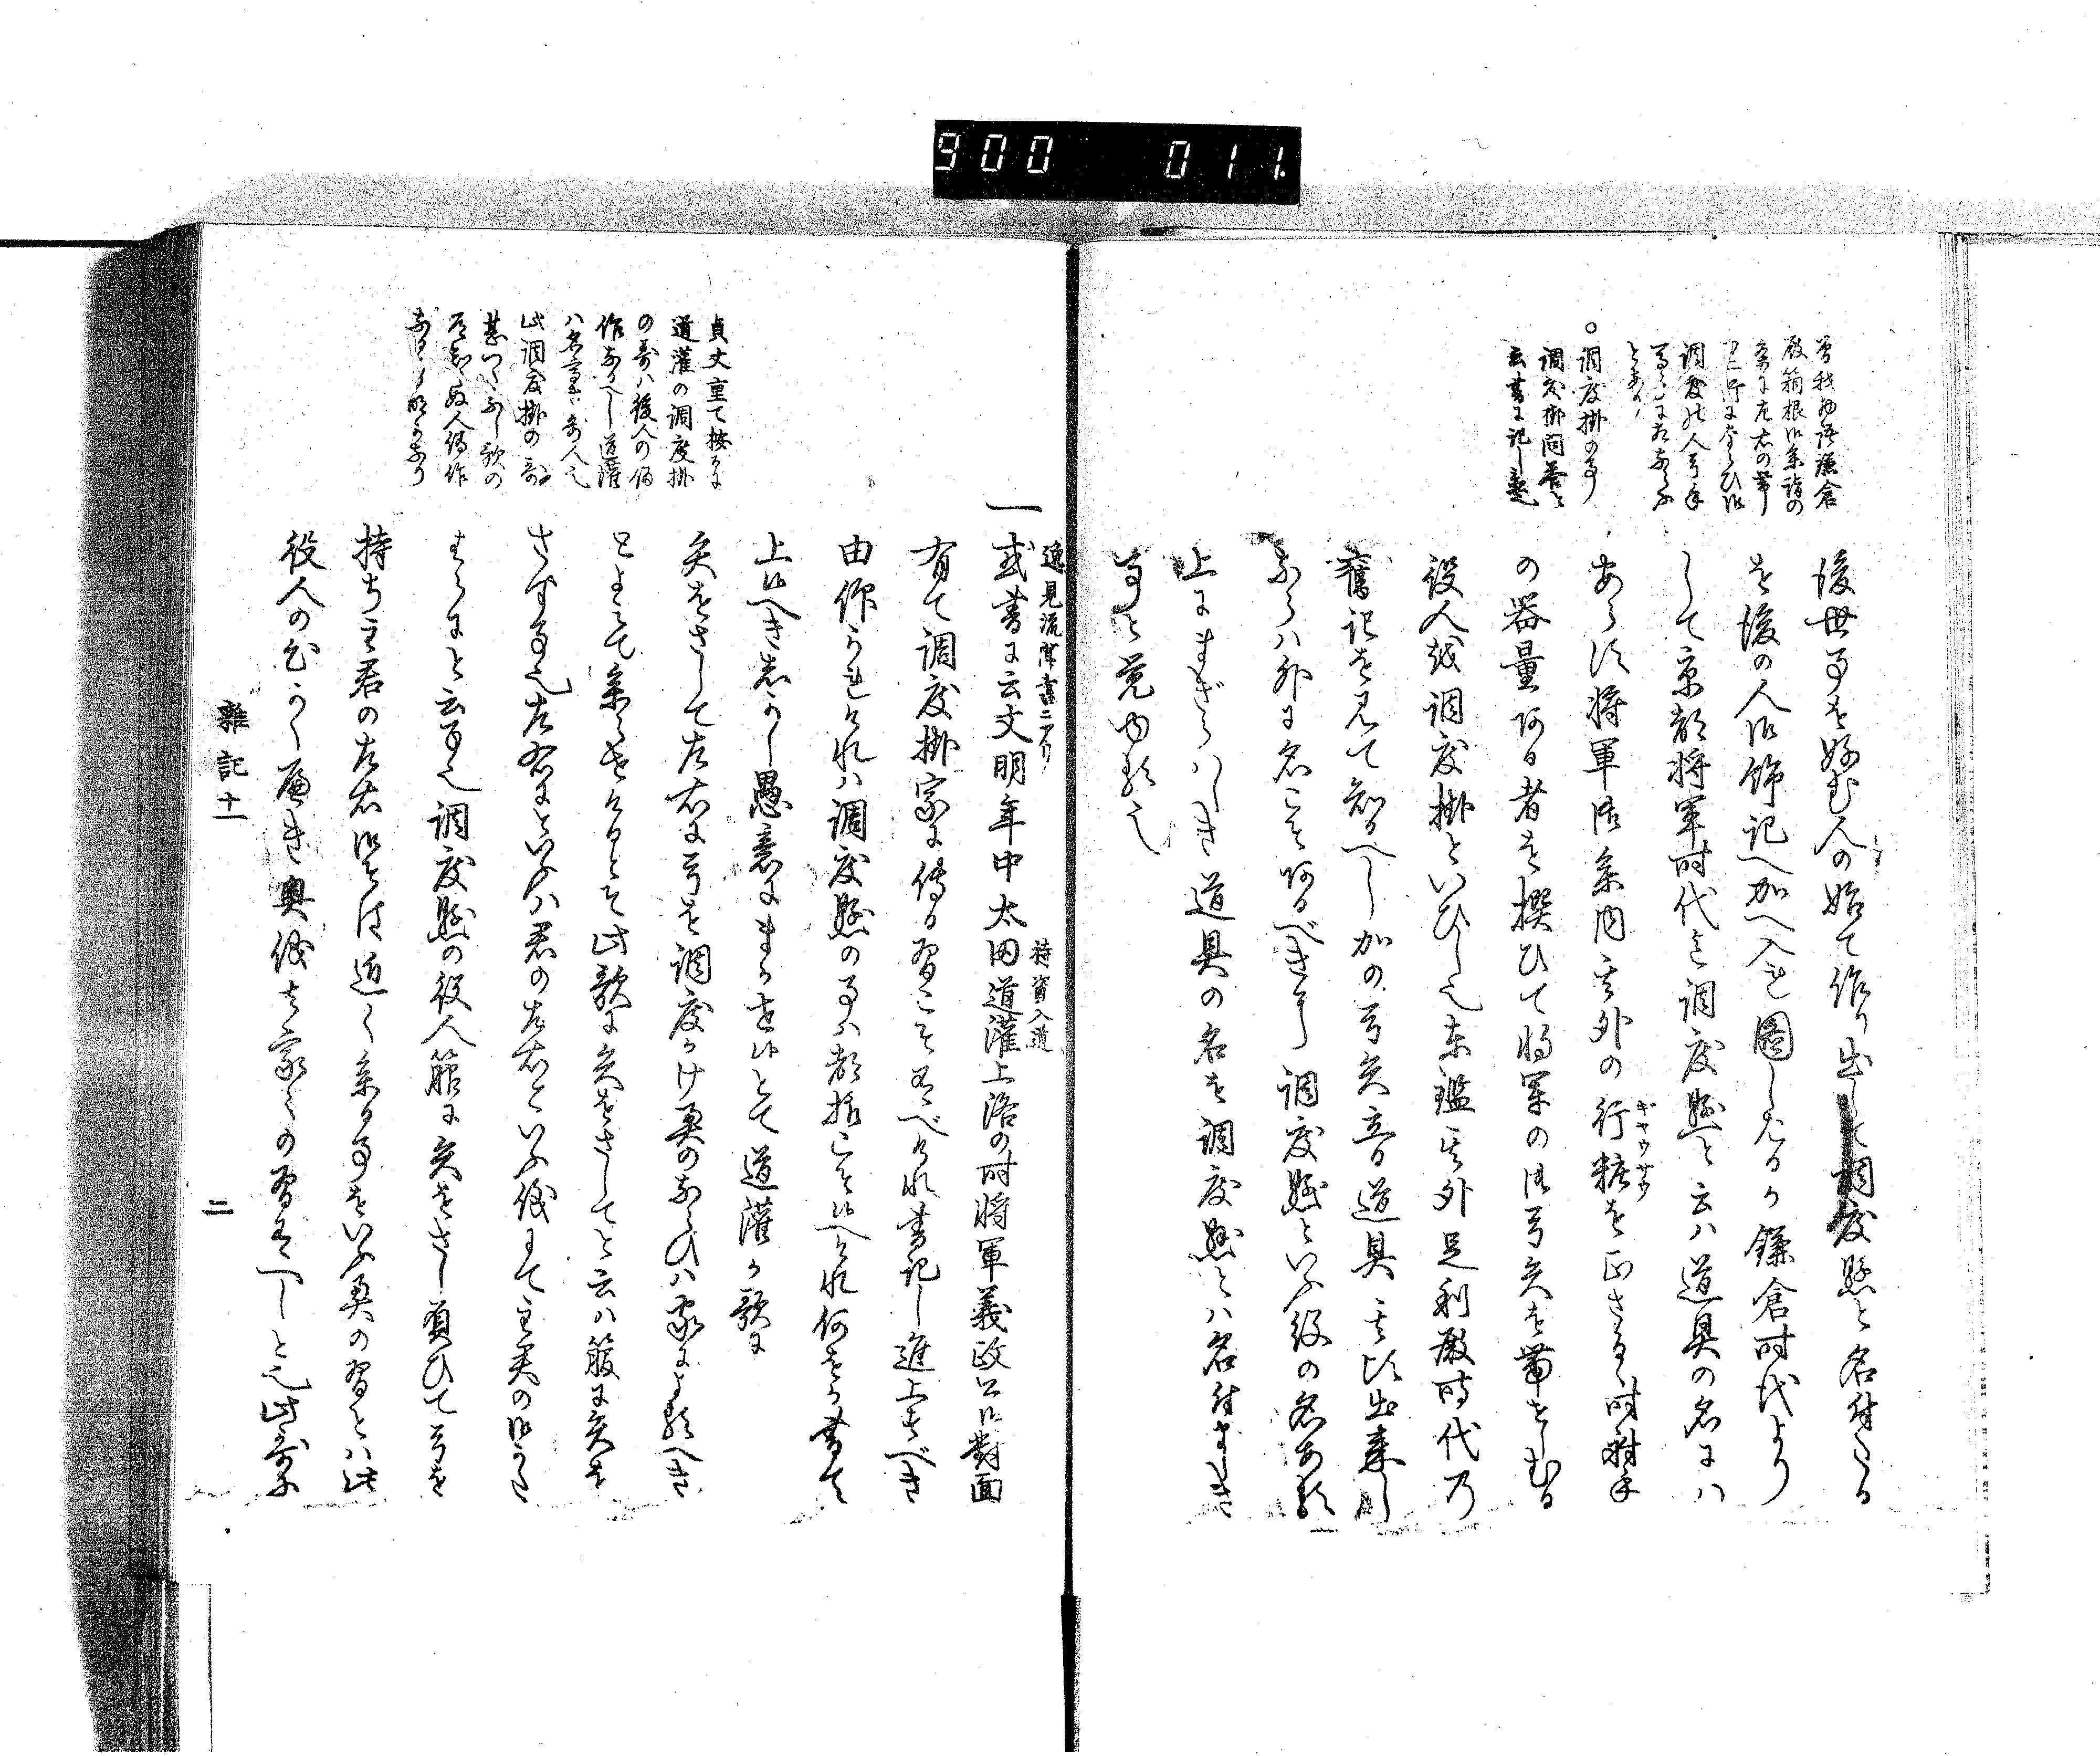 900 011
曽我物語鎌倉
殿箱根御参詣の
条に左右の帯
刀二行にならひ御
調度の人弓手
とあり
○調度掛の事
調度掛問答と
云書に記し置
後世事を好む人の始て作り出して調度懸と名付たる
を後の人御飾記へ加へ入て図したるか鎌倉時代より
して京都将軍時代迄調度懸と云は道具の名にハ
あらす将軍御参内其外の行粧を正さるゝ時射手
ギヤウサウ
の器量ある者を撰ひて将軍の御弓矢を帯せしむる
役人を調度掛といひし也東鑑其外足利殿時代乃
舊記を見て知るへし加の弓矢立る道具其比出来し
ならハ外に名こそあるべきに調度懸といふ役の名ある
上にまぎらハしき道具の名を調度懸とハ名付ましき
事と覚ゆる也
逸見流麻書ニアリ
持資入道
一或書に云文明年中太田道灌上洛の時将軍義政公に対面
有て調度掛家に傳る習こそ有べけれ書記し進上すべき
由仰られけれハ調度懸の事ハ都抔こそ候へけれ何をか書て
上候へき去なから愚意にまかせ候とて道灌か歌に
矢をさして左右に弓を調度かけ奥のならひハ家によるへき
とよみて参らせけるとそ此歌に矢をさしてと云ハ箙に矢を
さす事也左右にといふハ君の左右といふ儀にて主君の御かた
はらにと云事也調度懸の役人箙に矢をさし負ひて弓を
持ち主君の左右御そは近く参る事をいふ奥の習とハ此
役人の心かく廉き奥儀は家々の習有へしと也此哥に
貞丈重て按るに
道灌の調度掛
の哥ハ後人の偽
作なるへし道灌
ハ名高き哥人也
此調度掛の哥
甚つたなし歌の
道知ぬ人偽作
なる事明らかなり
雑記十一
二